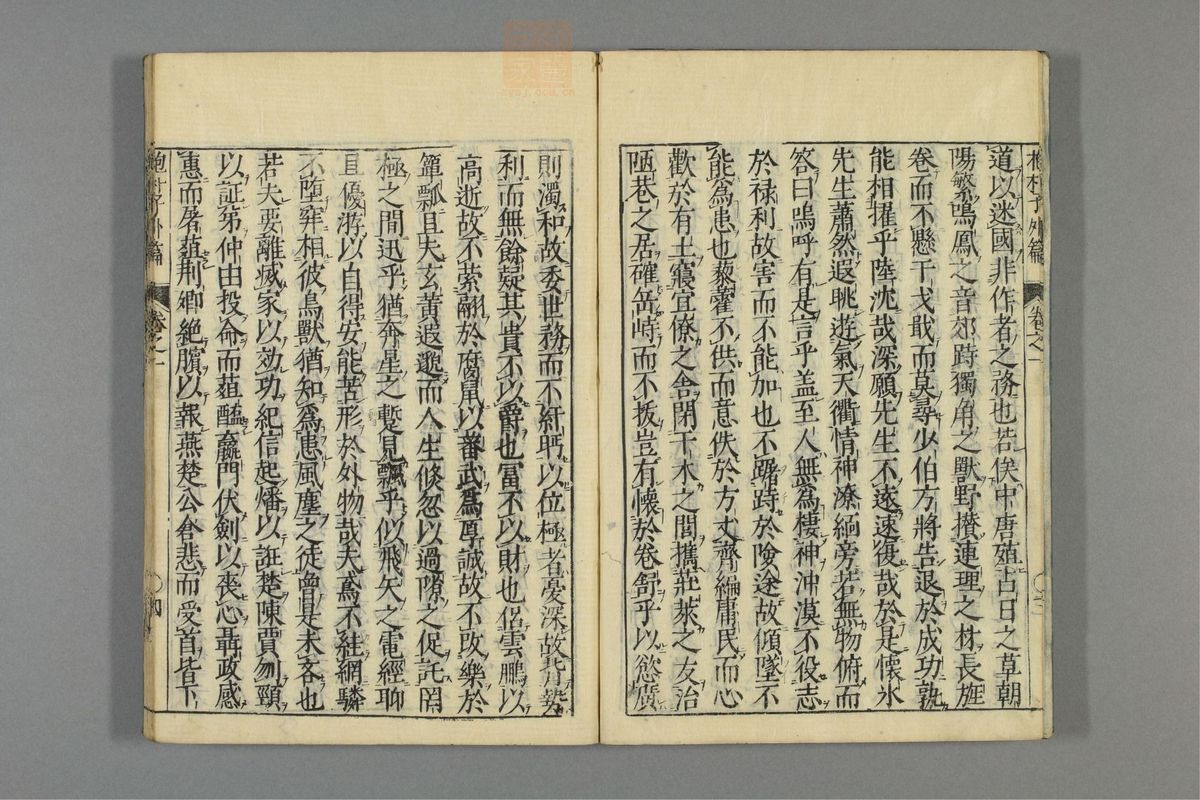 抱朴子外篇 卷之一 ○三
道以迷國非作者之務也若俟中唐殖占日之草朝
陽繁鳴鳳之音郊跱獨角之獸野攅連理之林長旌
卷而不懸干戈戢而莫尋少伯方將告退於成功孰
能相擢乎陸沈哉深願先生不遠速復哉於是懷氷
先生蕭然遐眺遊氣天衢情神遼緬旁若無物俯而
答曰嗚呼有是言乎盖至人無為棲神沖漠不役志
於禄利故害而不能加也不躊跱於險途故傾墜不
能為患也藜藿不供而意佚於方丈齊編庸民而心
歡於有土寢宜僚之舎閉干木之閭攜莊萊之友治
陋巷之居確岳峙而不拔豈有懷於卷舒乎以慾廣
則濁和故委世務而不紆眄以位極者憂深故背勢
利而無餘疑其貴不以爵也富不以財也侶雲鵬以
高逝故不萦翮於腐鼠以蕃武爲厚誡故不改樂於
簞瓢且夫玄黃遐邈而人生倏忽以過隙之促託罔
極之間迅乎猶奔星之暫見飄乎似飛矢之電經聊
且優游以自得安能苦形於外物哉夫鳶不絓網驎
不墮穽相彼鳥獸猶知爲患風塵之徒曾是未吝也
若夫要離滅家以効功紀信赴燔以誑楚陳賈刎頸
以証弟仲由投命而葅醢嬴門伏劍以表心聶政感
惠而屠葅荆卿絶臏以報燕楚公含悲而受首皆下
抱朴子外篇 卷之一 ○四